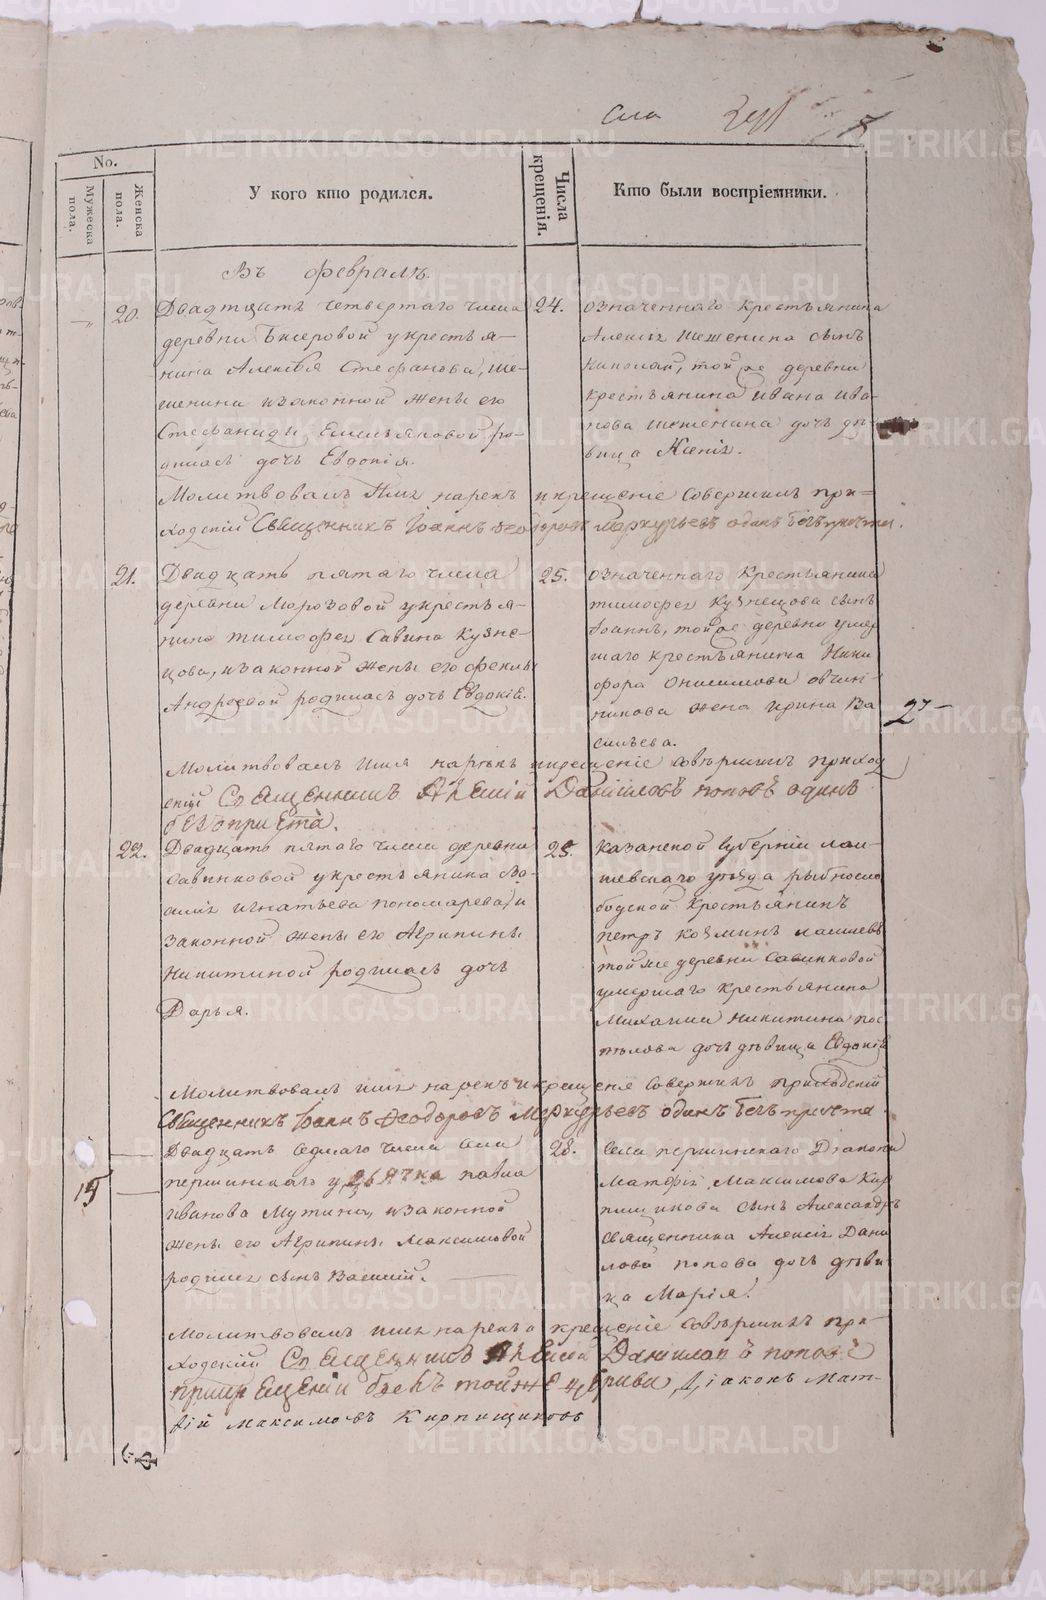 Сла
No.
Мужеска пола.
Женска пола.
У кого кто родился.
Числа крещенія.
Кто были воспріемники.
Въ февралѣ.
20.
Двадцать четвертаго числа
деревни Бисеровой у крестья-
нина Алексѣя Стефанова, Ше-
шенина и законной жены его
Стефаниды, Емельяновой ро-
дилась дочь Евдокія.
24.
означеннаго Крестьянина
Алексія Шешенина сынъ
Николай, той же деревни
крестьянина Ивана Ива-
нова Шешенина дочь дѣ-
вица Ксенія.
Молитвовалъ Имя нарекъ и крещеніе совершилъ при-
ходскій Священникъ Іоаннъ Ѳеодоровъ Меркурьевъ одинъ безъ причта.
21.
Двадцать пятаго числа
деревни Морозовой у крестья-
нина тимофея Савина Кузне-
цова, и законной жены его феклы
Андреевой родилась дочь Евдокія.
25.
означеннаго Крестьянина
тимофея Кузнецова сынъ
Іоаннъ, той же деревни умер
шаго крестьянина Ники
фора Онисимова овчин-
никова жена Ирина Ва
сильева.
27
Молитвовалъ имя нарекъ и крещеніе совершилъ приход
скій Священникъ Алексій Даниловъ поповъ одинъ
безъ причта.
22.
Двадцать пятаго числа деревни
Савинковой у крестьянина Ва-
силія игнатьева пономарева, и
законной жены его Агрипины
Никитиной родилась дочь
Дарья.
25.
Казанской Губерніи лаи-
шевскаго уѣзда рыбносло
бодской Крестьянинъ
петръ Козминъ
той же деревни Савинковой
умершаго крестьянина
Михаила Никитина пос
пѣлова дочь дѣвица Евдокія
Молитвовалъ имя нарекъ и крещеніе совершилъ приходскій
Священникъ Іоаннъ Ѳеодоровъ Меркурьевъ одинъ безъ причта.
19
Двадцать седмаго числа села
першинскаго у дьячка павла
Иванова Мутина, и законной
жены его Агрипины Максимовой
родился сынъ Василій.
28.
Села першинскаго Діакона
Матфія Максимова Кир
пищикова сынъ Александръ
священника Алексія Дани
лова попова дочь дѣви
ца Марія.
Молитвовалъ имя нарекъ и крещеніе совершилъ при-
ходскій Священникъ Алексій Даниловъ поповъ
при крещеніи былъ той же церкви, Діаконъ Мат-
ѳій Максимовъ Кирпищиковъ
METRIKI.GASO-URAL.RU